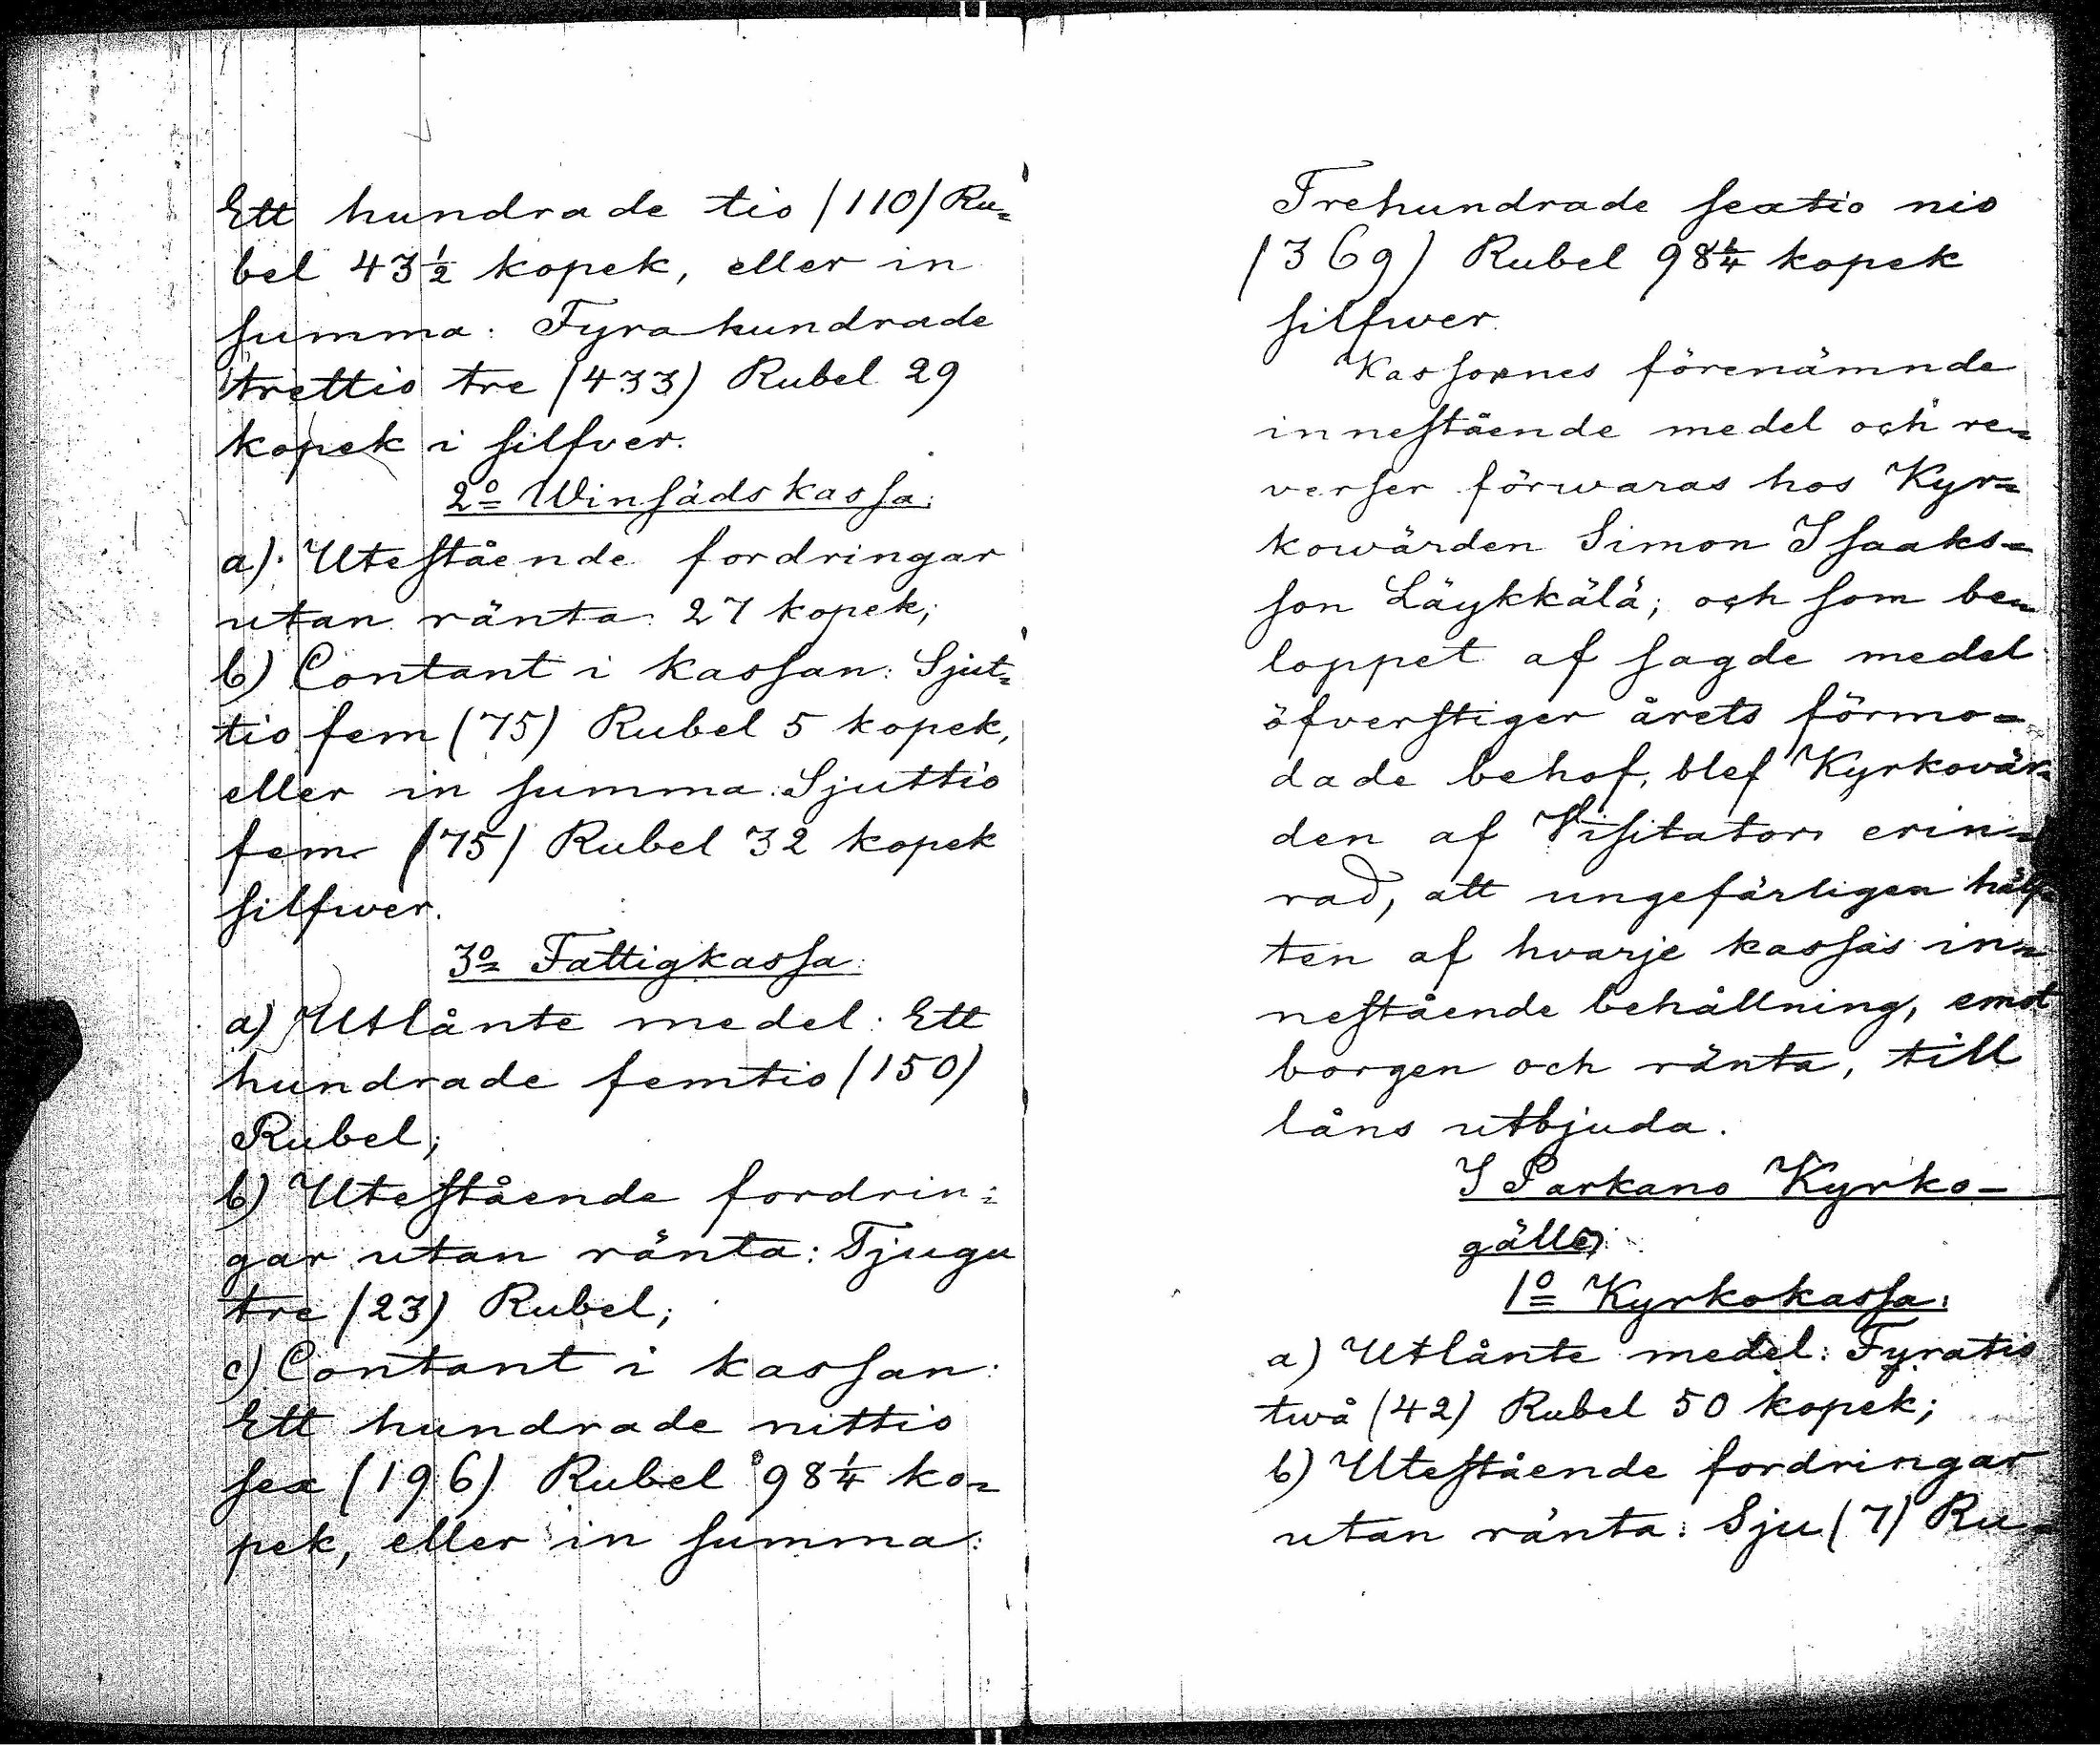 Ett hundrade tio (110) Ru=
bel 43½ kopek, eller in
summa: Fyrahundrade
trettio tre (433) Rubel 29
kopek i silfver.
2º Winsädskassa:
a). Utestående fordringar
utan ränta 27 kopek;
b) Contant i kassan: Sjut=
tio fem (75) Rubel 5 kopek,
eller in summa: Sjuttio
fem (75) Rubel 32 kopek
silfwer.
3º Fattigkassa:
a) Utlånte medel: Ett
hundrade femtio (150)
Rubel;
b) Utestående fordrin=
gar utan ränta: Tjugu
tre (23) Rubel;
c) Contant i kassan:
Ett hundrade nittio
sex (196) Rubel 98¼ ko=
pek, eller in summa:
Trehundrade sextio nio
(369) Rubel 98¼ kopek
silfwer.
Kassornes förenämnde
innestående medel och re=
verser förwaras hos Kyr=
kowärden Simon Isaaks=
son Läykkälä; och som be=
loppet af sagde medel
öfverstiger årets förmo=
dade behof, blef Kyrkovär=
den af Visitator erin=
rad, att ungefärligen hälf=
ten af hvarje kassas in=
nestående behållning, emot
borgen och ränta, till
låns utbjuda.
I Parkano Kyrko-
gälle,
1º Kyrkokassa:
a) Utlånte medel: Fyratio
twå (42) Rubel 50 kopek;
b) Utestående fordringar
utan ränta: Sju (7) Ru=